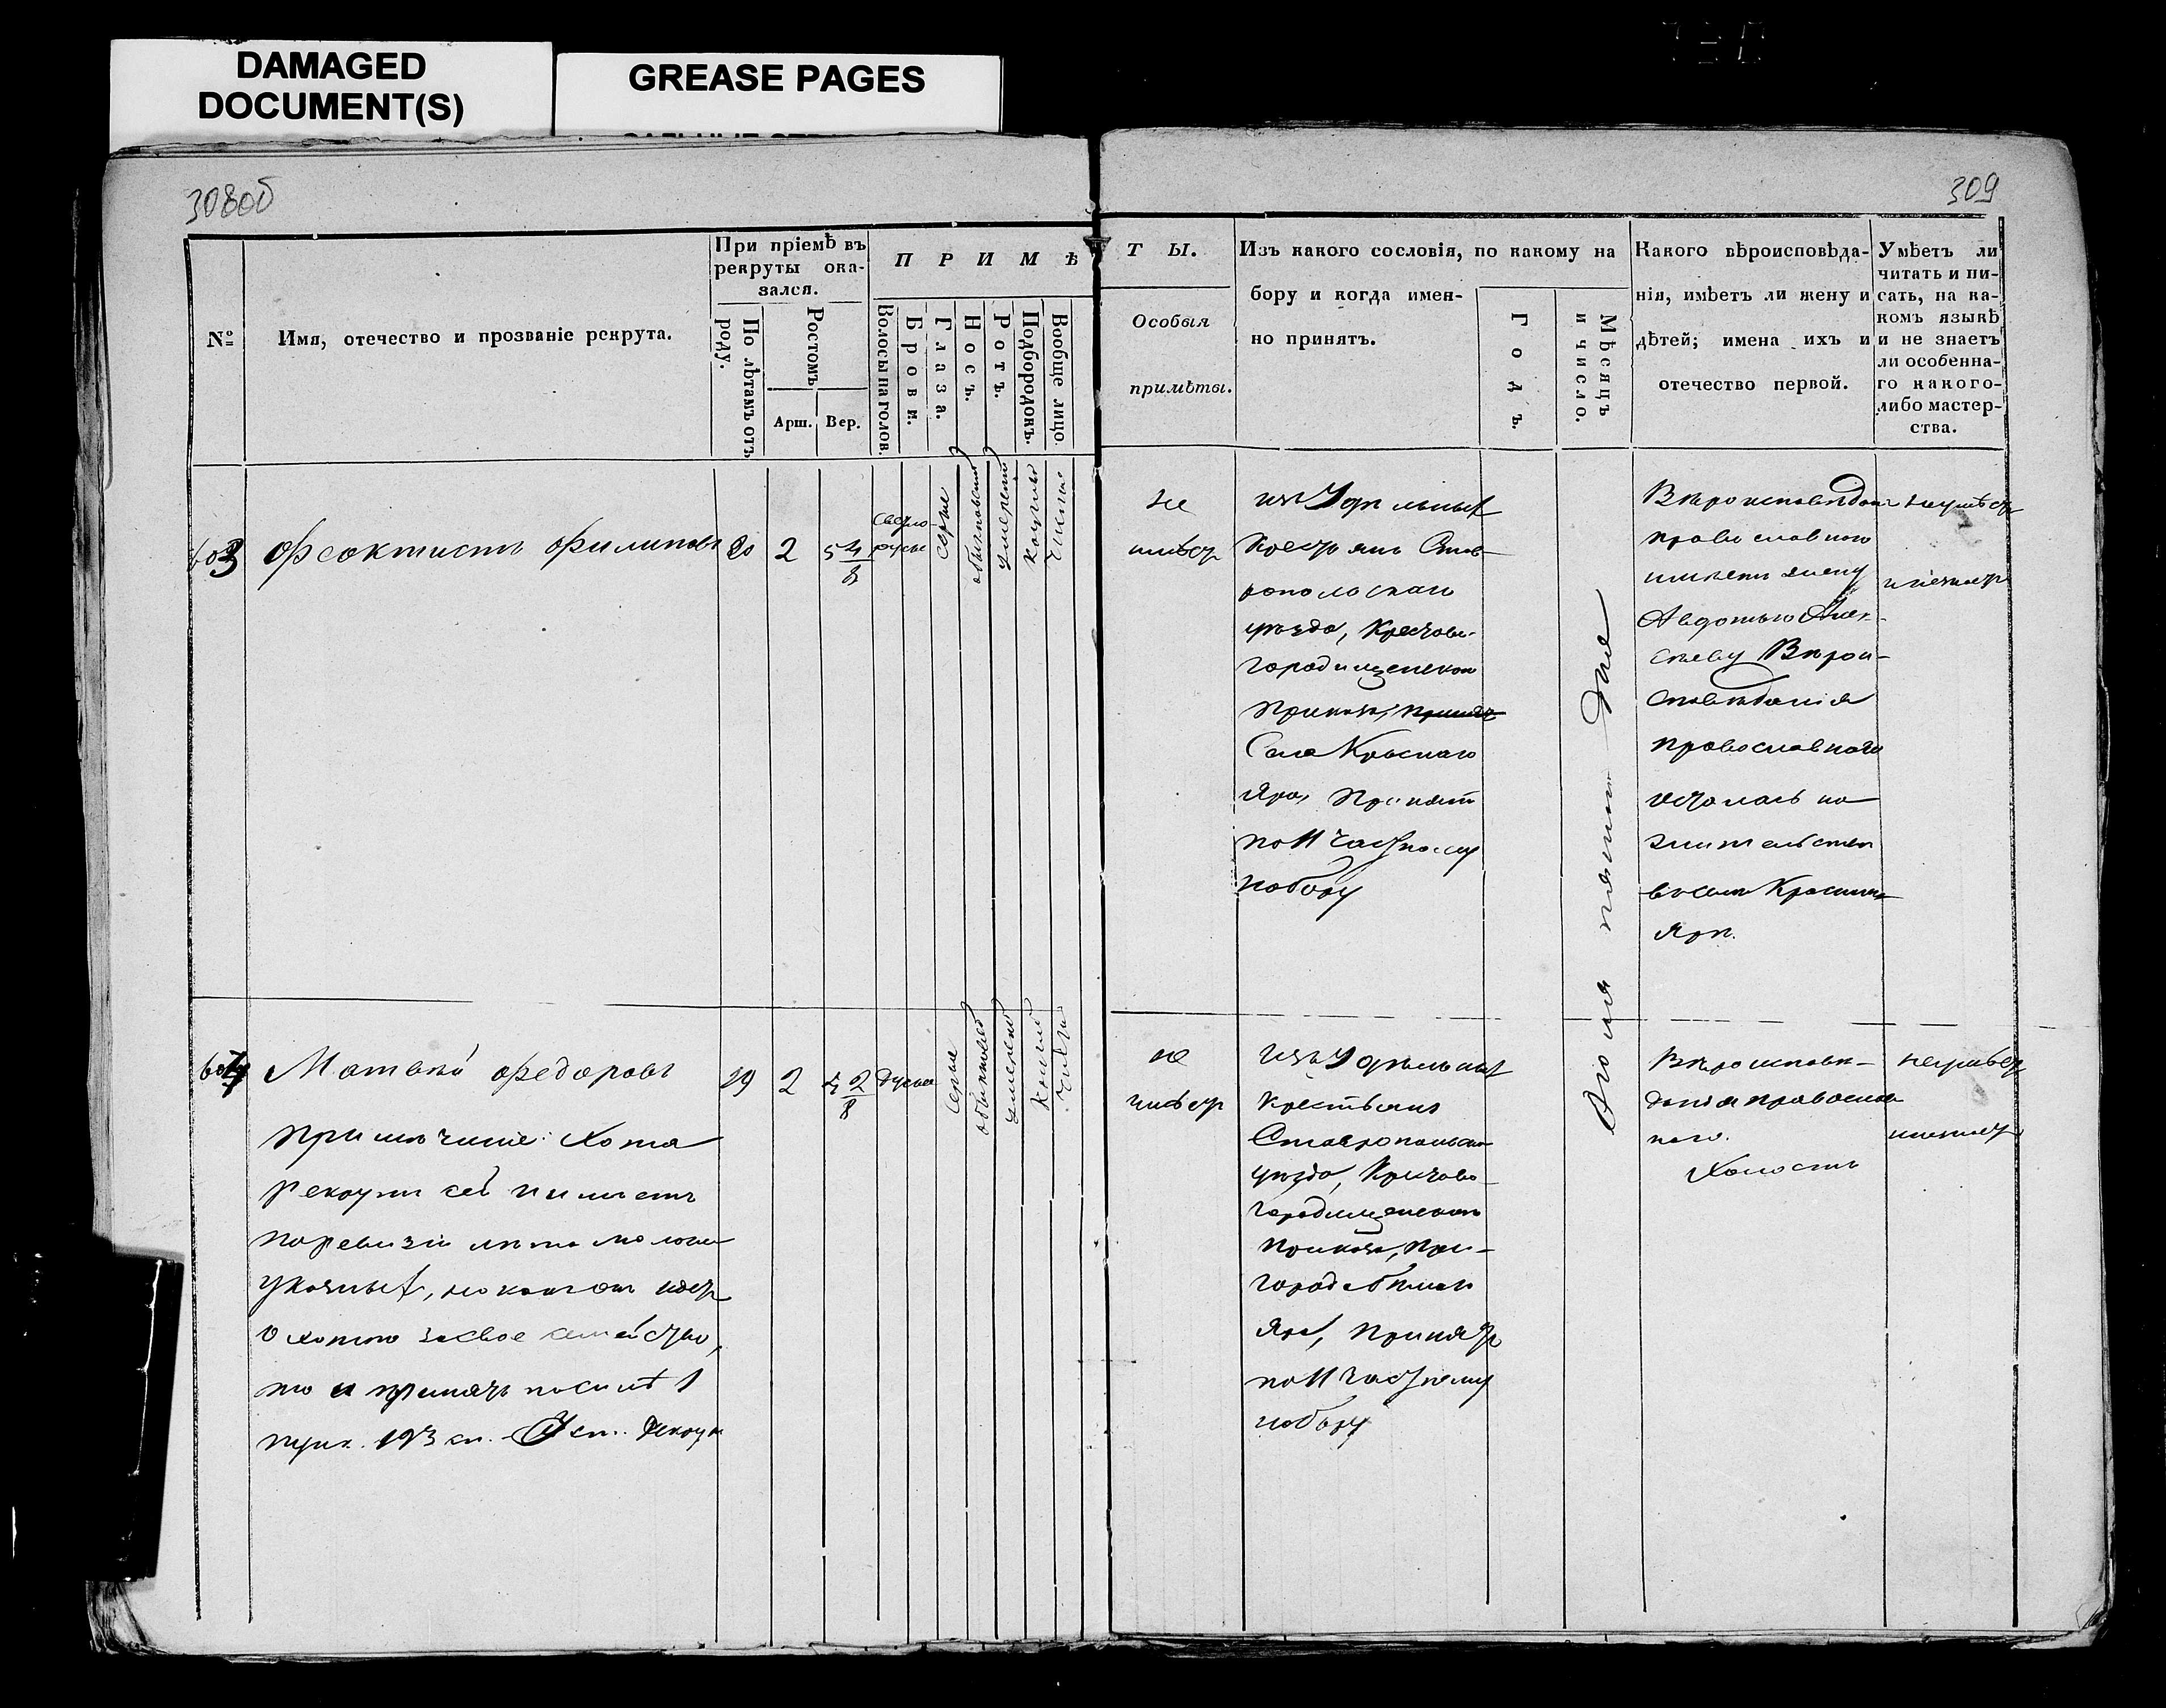 DAMAGED
DOCUMENT(S)
GREASE PAGES
308об
309
№
Имя, отечество и прозваніе рекрута.
При пріемѣ въ
рекруты ока-
зался.
По лѣтамъ отъ
роду.
Ростомъ
Арш.
Вер.
П Р И М Ѣ
Волосы на голов.
Брови.
Глаза.
Носъ.
Ротъ.
Подбородокъ.
Вообще лицо.
Т Ы.
Особыя
примѣты.
Изъ какого сословія, по какому на
бору и когда имен-
но принятъ.
Годъ.
Мѣсяцъ
и число.
Какого вѣроисповѣда-
нія, имѣетъ ли жену и
дѣтей; имена ихъ и
отечество первой.
Умѣетъ ли
читать и пи-
сать, на ка-
комъ языкѣ
и не знаетъ
ли особенна-
го какого-
либо мастер-
ства.
603
Феоктистъ Филиповъ
20
2
5 4/8
светло-
русые
серые
обыкновен
умерен
круглый
чистое
не
имѣетъ
изъ Удѣльныхъ
Крестьянъ Став-
ропольскаго
уѣзда, Крестово-
городищенскаго
Приказа,
Села Краснаго
Яра, Принятъ
по II частному
набору
Іюля пятаго дня
Вѣроисповѣдан
православнаго
имѣетъ жену
Авдотью Алек-
сѣеву Вѣрои-
сповѣданія
православнаго
осталась на
жительствѣ
въ селѣ Красномъ
Ярѣ.
неумѣетъ
604
Матвѣй Федоровъ
Примѣчаніе: Хотя
рекрутъ сей и имѣетъ
по ревизіи лѣта
указныхъ, но какъ онъ идетъ
охотою за свое семейство,
то и принятъ по силѣ 1
пунк. 193 ст. Уст. Рекрут
19
2
4 2/8
русые
серые
обыкновен
умерен
круглый
чистое
не
имѣетъ
изъ Удѣльныхъ
Крестьянъ
Ставропольскаго
уѣзда, Крестово-
городищенскаго
Приказа, При-
города Бѣлаго
Яра, Принятъ
по II частному
набору
Вѣроисповѣ-
данія православ
наго.
Холостъ
неумѣетъ